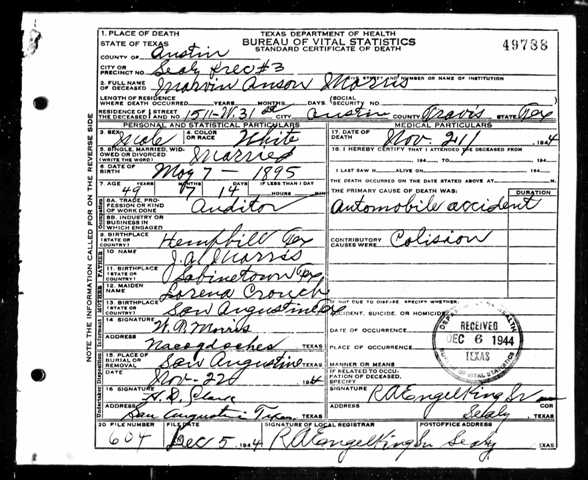 1. PLACE OF DEATH
STATE OF TEXAS
TEXAS DEPARTMENT OF HEALTH
BUREAU OF VITAL STATISTICS
STANDARD CERTIFICATE OF DEATH
49738
COUNTY OF Austin
CITY OR PRECINCT NO. Sealy Prec #3
2. FULL NAME OF DECEASED Marvin Anson Morris
LENGTH OF RESIDENCE WHERE DEATH OCCURRED YEARS MONTHS DAYS SOCIAL SECURITY NO.
RESIDENCE OF THE DECEASED STREET AND NO. 1511-W. 31 CITY Austin COUNTY Travis STATE Tex
PERSONAL AND STATISTICAL PARTICULARS
MEDICAL PARTICULARS
3. SEX Male 4. COLOR OR RACE White
17. DATE OF DEATH Nov. 21 1944
5. SINGLE, MARRIED, WIDOWED OR DIVORCED (WRITE THE WORD) Married
18. I HEREBY CERTIFY THAT I ATTENDED THE DECEASED FROM
194 TO 194
6. DATE OF BIRTH May 7 - 1895
I LAST SAW H ALIVE ON 194
7. AGE 49 YEARS MONTHS DAYS 14 IF LESS THAN 1 DAY HOURS MIN
THE DEATH OCCURRED ON THE DATE STATED ABOVE AT M.
8A. TRADE, PROFESSION OR KIND OF WORK DONE Auditor
THE PRIMARY CAUSE OF DEATH WAS: DURATION
Automobile accident
8B. INDUSTRY OR BUSINESS IN WHICH ENGAGED
9. BIRTHPLACE (STATE OR COUNTRY) Hemphill Tex
CONTRIBUTORY CAUSES WERE: Colision
FATHER
10. NAME J.A. Morris
11. BIRTHPLACE (STATE OR COUNTRY) Sabinetown Tex
MOTHER
12. MAIDEN NAME Lorena Crouch
13. BIRTHPLACE (STATE OR COUNTRY) San Augustine
IF NOT DUE TO DISEASE, SPECIFY WHETHER:
ACCIDENT, SUICIDE, OR HOMICIDE
14. SIGNATURE W.P. Morris
DATE OF OCCURRENCE
ADDRESS Nacogdoches TEXAS
PLACE OF OCCURRENCE
15. PLACE OF BURIAL OR REMOVAL San Augustine TEXAS
MANNER OR MEANS
DATE Nov-22 1944
IF RELATED TO OCCUPATION OF DECEASED, SPECIFY
16. SIGNATURE
SIGNATURE R A Engelking
ADDRESS San Augustine Texas TEXAS
ADDRESS Sealy TEXAS
20. FILE NUMBER FILE DATE SIGNATURE OF LOCAL REGISTRAR POSTOFFICE ADDRESS
604 Dec 5 1944 R A Engelking Sealy TEXAS
NOTE THE INFORMATION CALLED FOR ON THE REVERSE SIDE
RECEIVED
DEC 6 1944
TEXAS
BUREAU OF VITAL STATISTICS